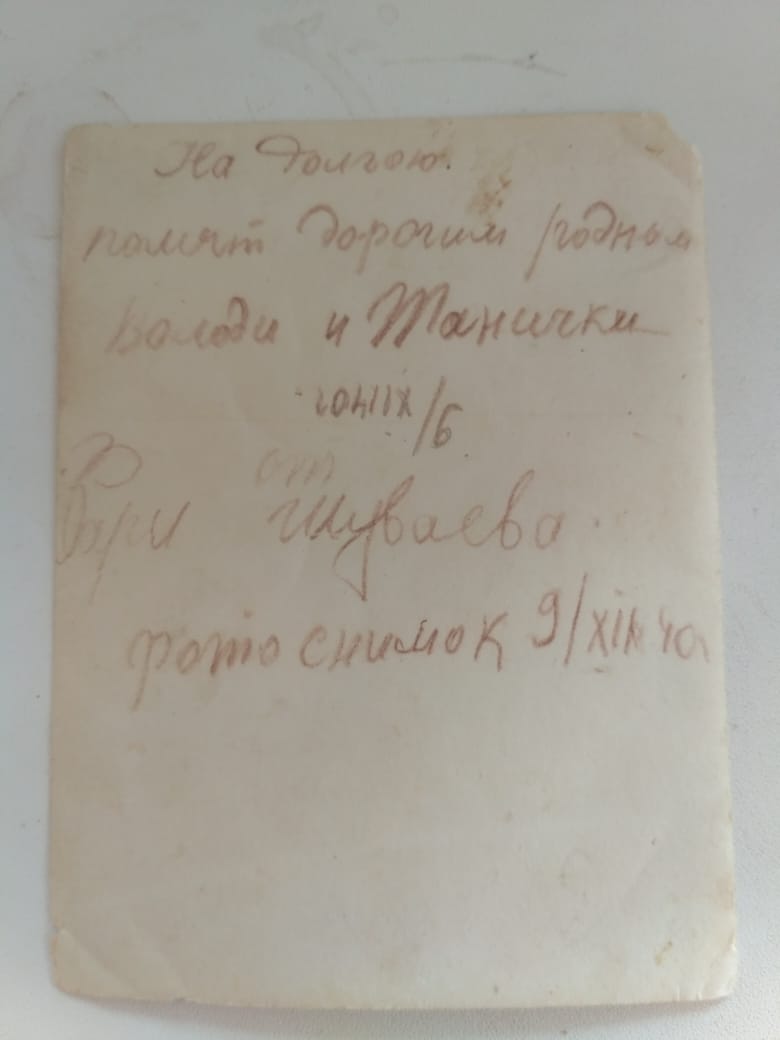 На долгою.
помят дорогим родным
Володи и Танички
от
Шуваева.
фото снимок 9/XII 40г